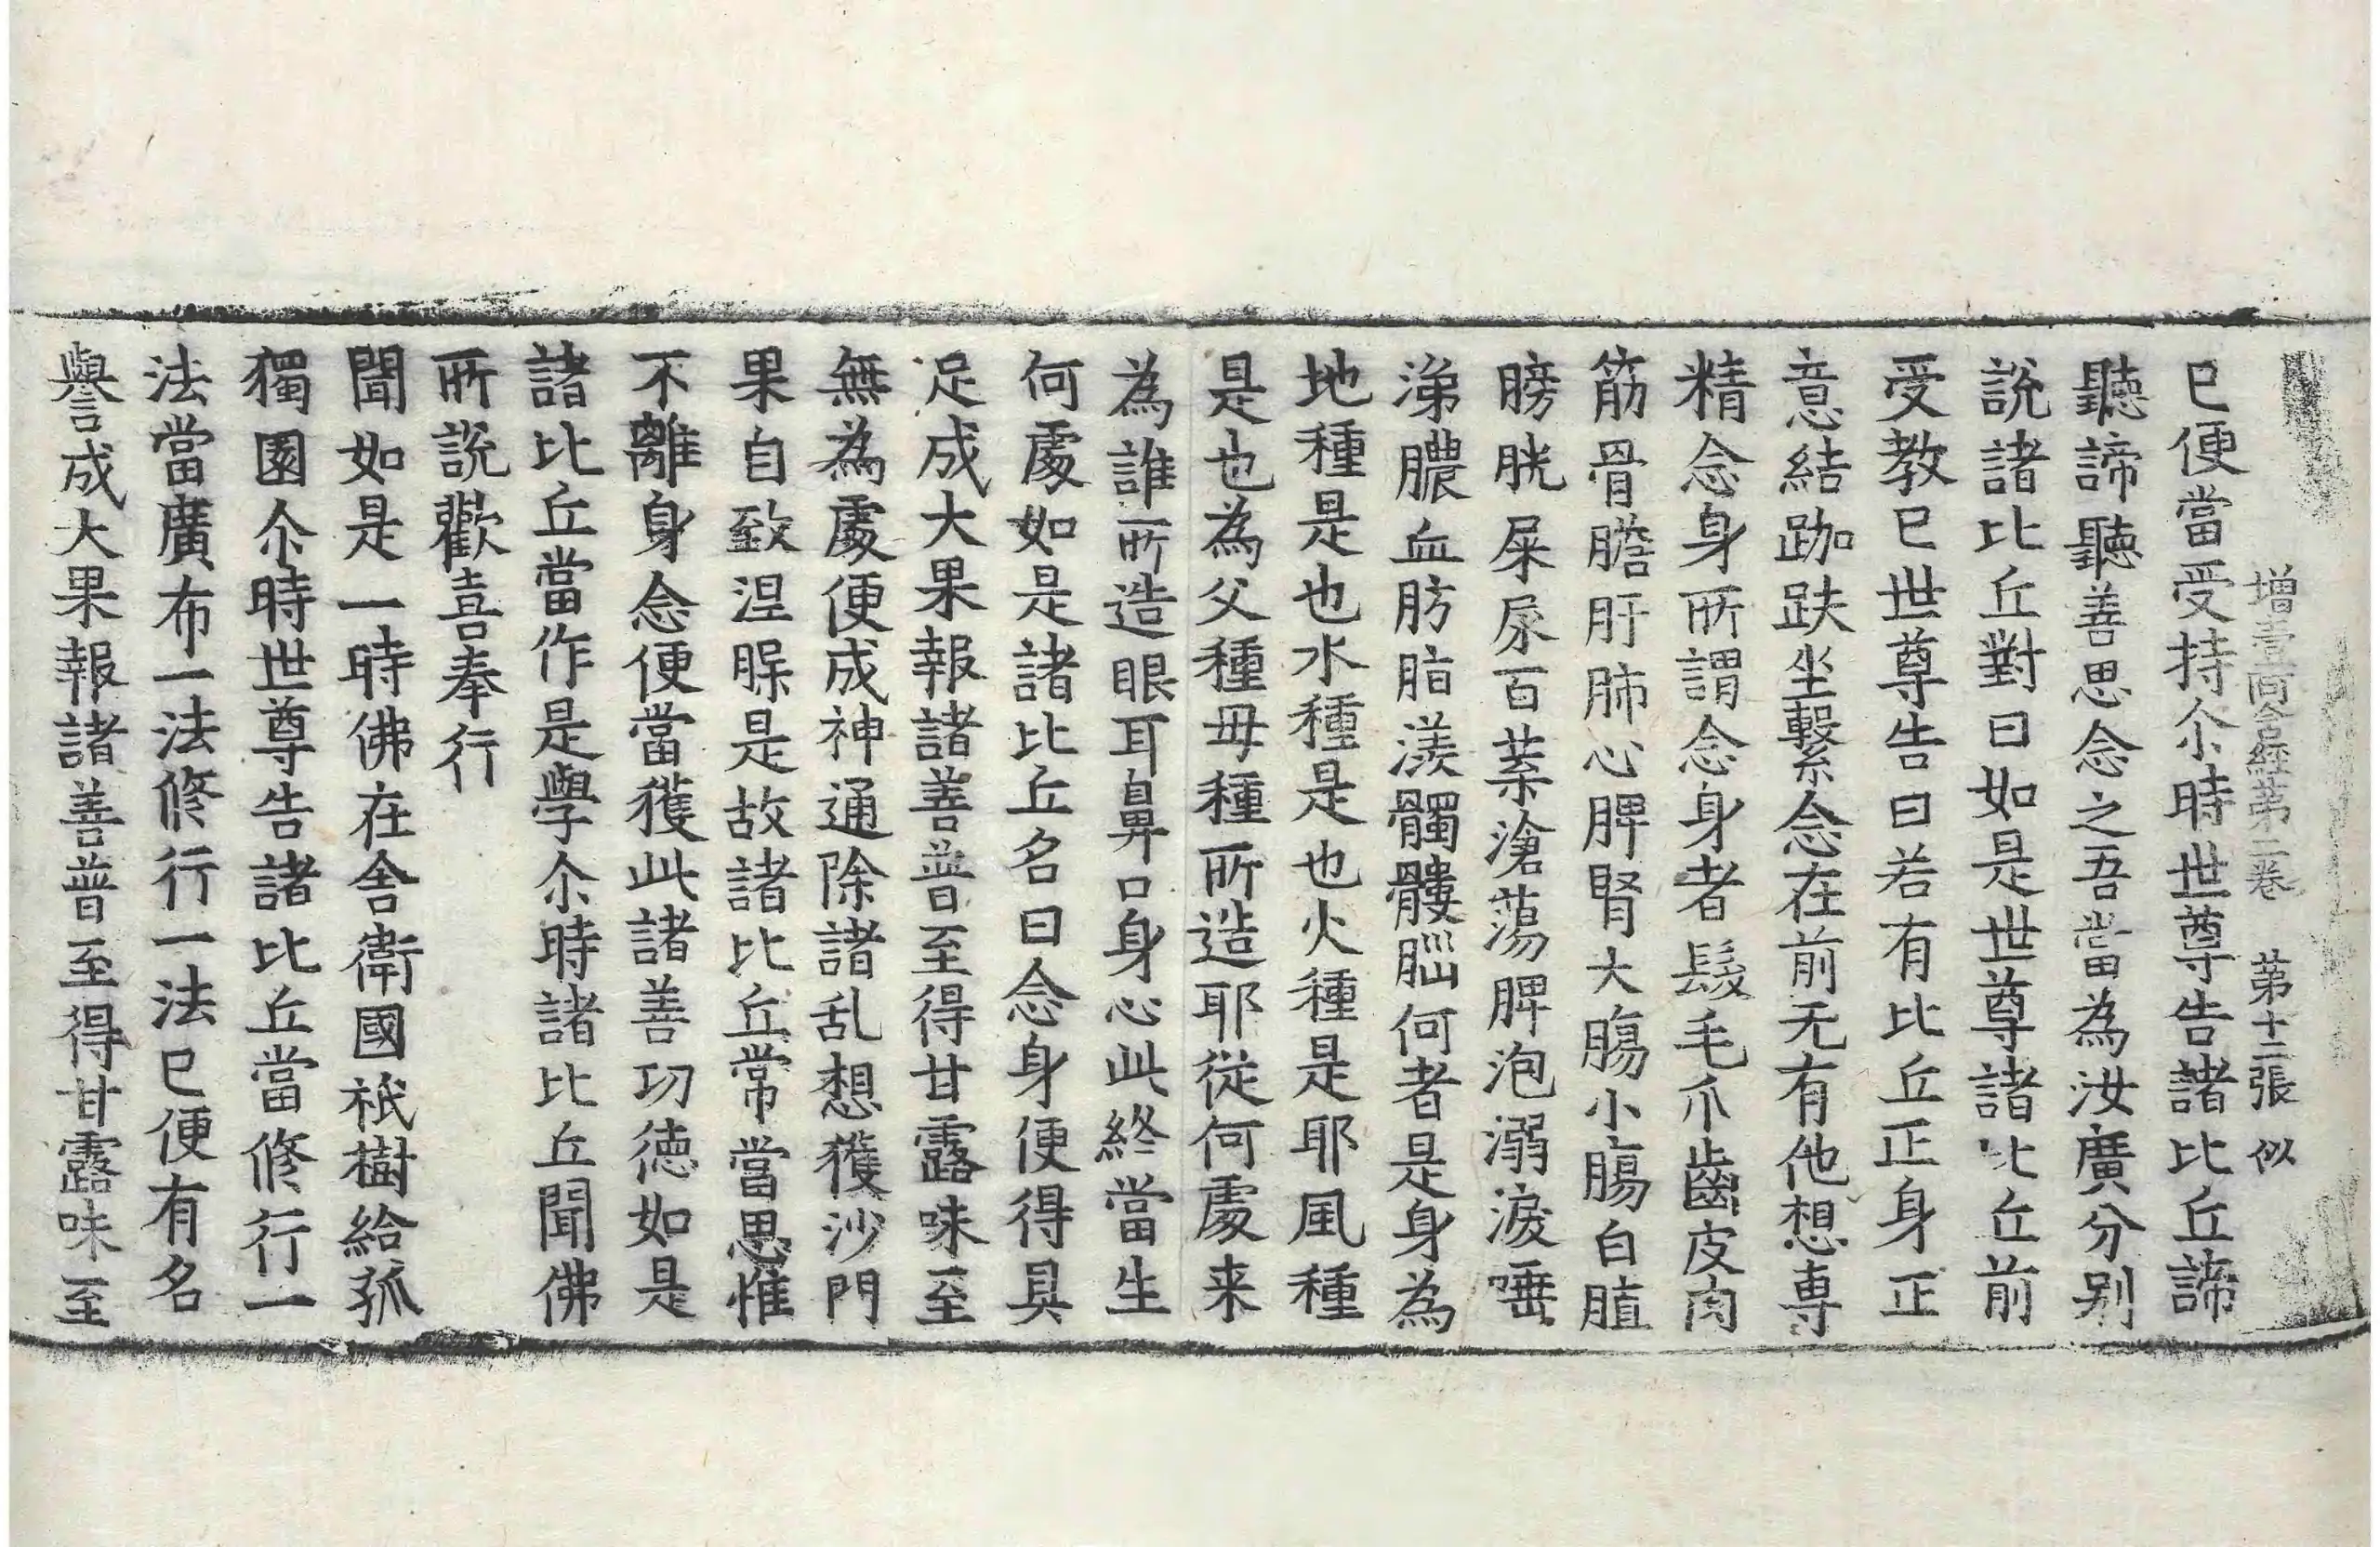 增壹阿含經第二卷　第十二張　似
已便當受持尒時世尊告諸比丘諦
聽諦聽善思念之吾當為汝廣分别
說諸比丘對曰如是世尊諸比丘前
受教已世尊告曰若有比丘正身正
意結跏趺坐繫念在前无有他想專
精念身所謂念身者髮毛爪齒皮肉
筋骨膽肝肺心脾腎大膓小膓白䐈
膀胱屎尿百葉滄蕩脾泡溺淚唾
涕膿血肪脂涎髑髏腦何者是身為
地種是也水種是也火種是耶風種
是也為父種母種所造耶從何處来
為誰所造眼耳鼻口身心此終當生
何處如是諸比丘名曰念身便得具
足成大果報諸善普至得甘露味至
無為處便成神通除諸乱想獲沙門
果自致涅槃是故諸比丘常當思惟
不離身念便當獲此諸善功德如是
諸比丘當作是學尒時諸比丘聞佛
所說歡喜奉行
聞如是一時佛在舍衛國祇樹給孤
獨園尒時世尊告諸比丘當修行一
法當廣布一法修行一法已便有名
譽成大果報諸善普至得甘露味至